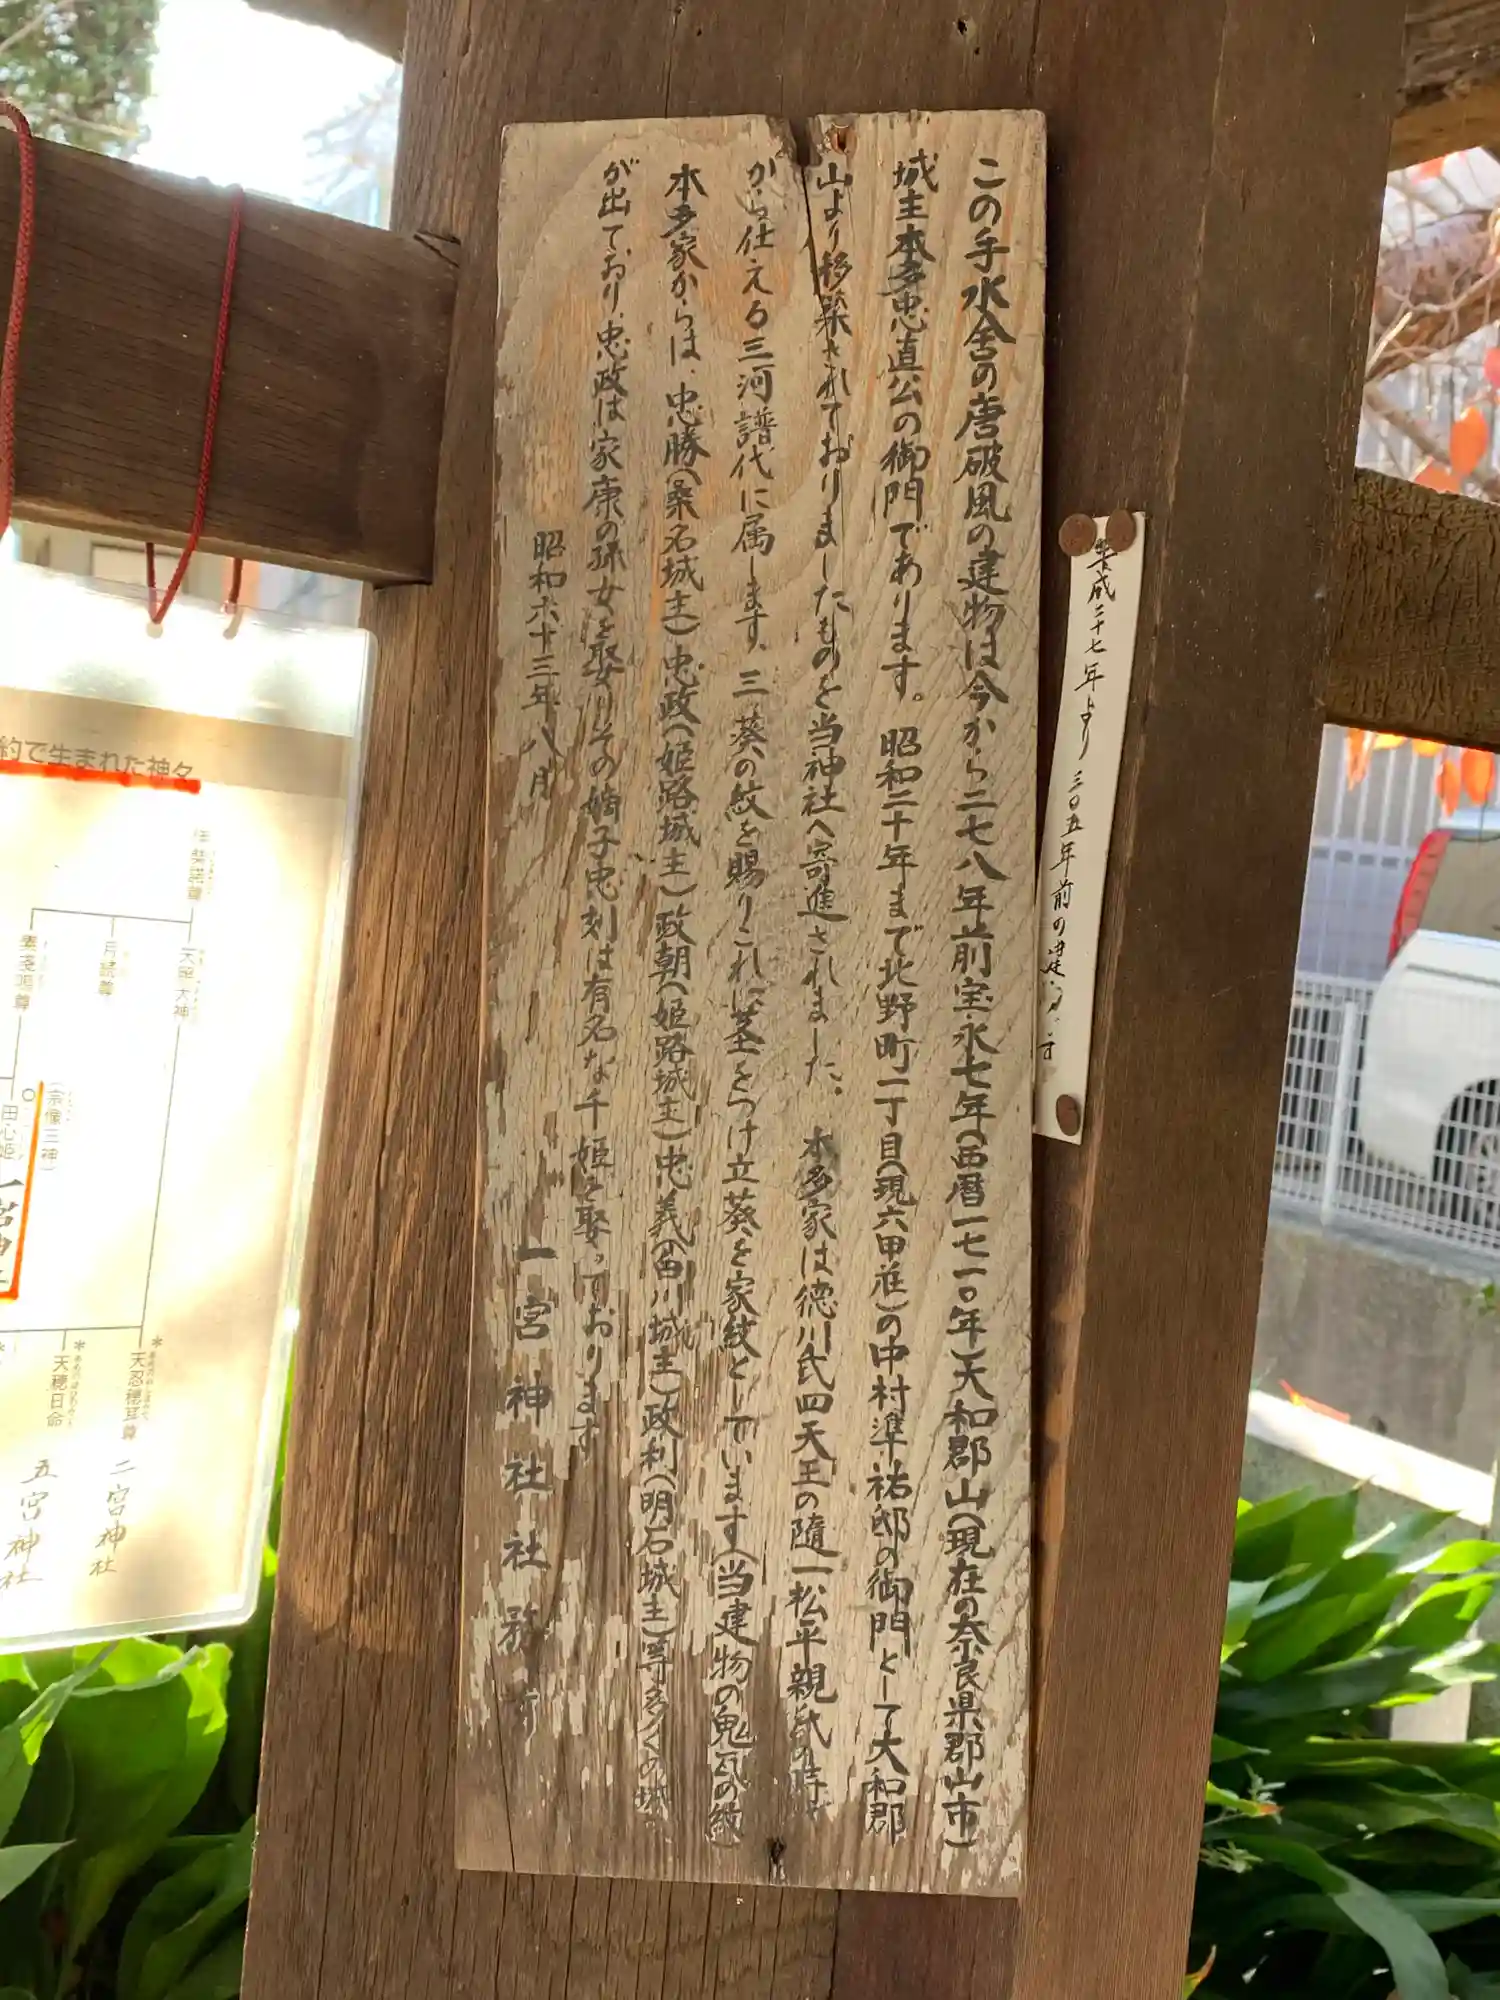 平成二十七年より三〇五年前の建
この手水舎の唐破風の建物は今から二七八年前宝永七年(西暦一七一〇年)大和郡山(現在の奈良県郡山市)
城主本多忠直公の御門であります。昭和二十年まで北野町一丁目(現六甲荘)の中村準祐邸の御門として大和郡
山より移築されておりましたものを当神社へ寄進されました。本多家は徳川氏四天王の随一松平親氏の時代
から仕える三河譜代に属します、三ッ葵の紋を賜りこれに茎をつけ立葵を家紋としています(当建物の鬼瓦の紋)
本多家からは、忠勝(桑名城主)忠政(姫路城主)政朝(姫路城主)忠義(白川城主)政利(明石城主)等多くの城主
が出ており、忠政は家康の孫女を娶りその嫡子忠刻は有名な千姫を娶っております
昭和六十三年八月
一宮神社社務所
約で生まれた神々
月読尊
天照大神
素戔嗚尊
(宗像三神)
田心姫
一宮神社
*天忍穂耳尊
二宮神社
*天穂日命
五宮神社